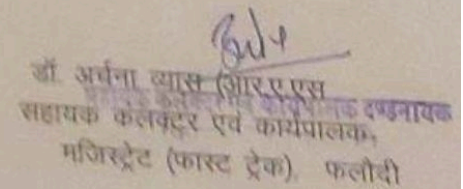 डॉ. अर्चना व्यास (आर.ए.एस
दण्डनायक
सहायक कलक्टर एवं कार्यपालक,
मजिस्ट्रेट (फास्ट ट्रेक), फलौदी